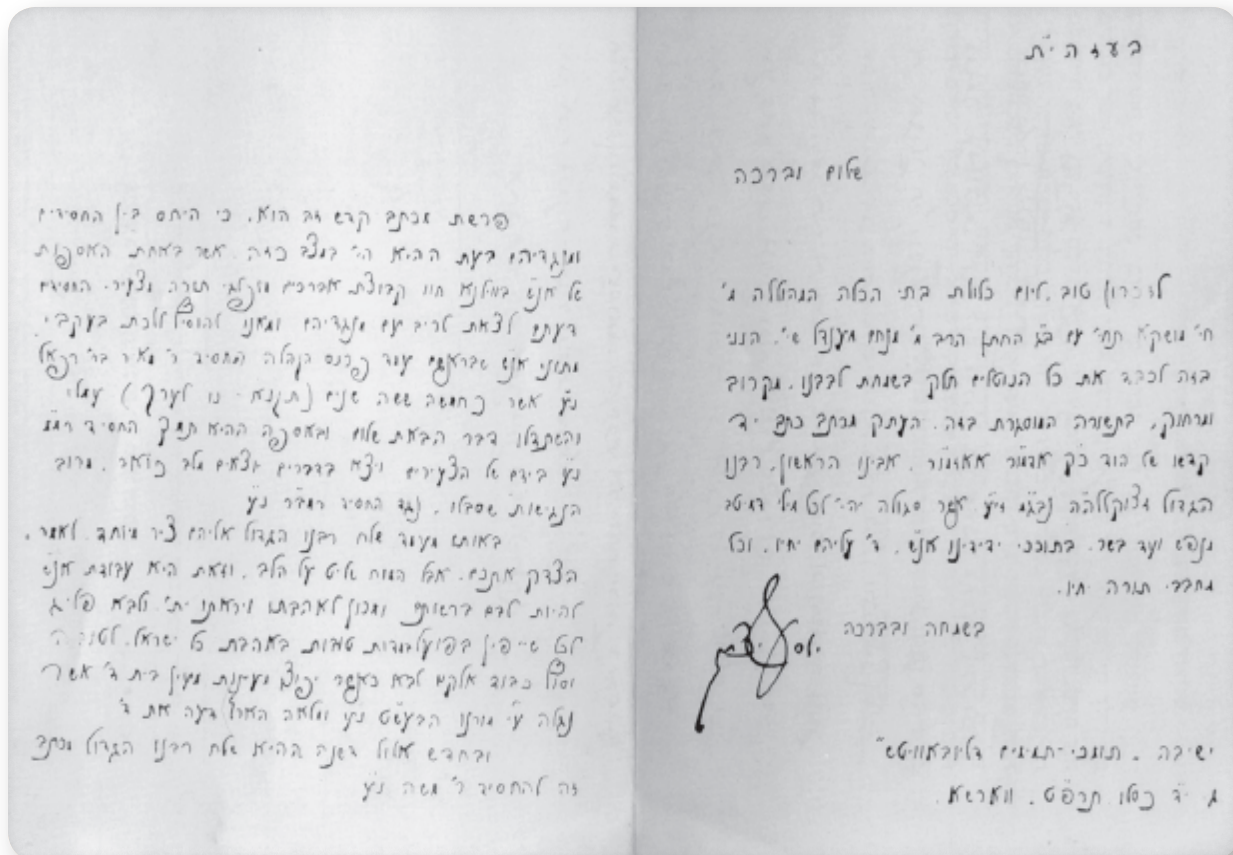 בעזהי"ת
שלום וברכה
לזכרון טוב, ליום כלולת בתי הכלה המהוללה מ'
חי' מושקא תחי' עם ב"ג החתן הרב מ' מנחם מענדל שי'. הנני
בזה לכבד את כל הנוטלים חלק בשמחת לבבנו, מקרוב
ומרחוק, בתשורה המוסגרת בזה. העתק מכתב כתב יד
קדשו של הוד כ"ק אדמו"ר אאזמו"ר, אבינו הראשון, רבנו
הגדול נבג"מ זי"ע אשר סגולה יהי' לכל מילי דמיטב
מנפש ועד בשר. בתוככי ידידינו אנ"ש. ד' עליהם יחיו. וכל
מחבבי תורה יחיו.
בשמחה ובברכה
יוסף יצחק
ישיבה "תומכי-תמימים דליובאוויטש"
ג' י"ד כסלו תרפ"ט. ווארשא.
פרשת מכתב קדש זה הוא. כי היחס בין החסידים
ומנגדיהם בעת ההיא הי' במצב כזה אשר באחת האספות
של אנ"ש בווילנא חוו קבוצת אברכים מופלגי תורה מצעירי החסידים
דעתם לצאת לריב עם מנגדיהם ומאנו להוסיף ללכת בעקבי
מתוני אנ"ש שבראשם עמד פרנס הקהלה החסיד ר' מאיר בר' רפאל
נ"ע אשר כחמשה ששה שנים (תקנ"א - נו לערך) עמלו
והשתדלו דבר הבאת שלום ובאספה ההיא תמך החסיד
נ"ע בידם של הצעירים ויצא בדברים יוצאים מלב כואב, מרוב
הנגישות שסבלו, נגד החסיד רמב"ר נ"ע
באותו מעמד שלח רבנו הגדול אליהם ציר מיוחד לאמר.
הצדק אתכם, אבל המוח שליט על הלב. וזאת היא עבודת אנ"ש
להיות לבם ברשותם ומכון לאהבתו ויראתו ית' ולבא
לכל בפועל מדות טובות באהבת כל ישראל.
כבוד אלקים לבא כאשר יפוצו מעינות מעין בית ד' אשר
נגלה ע"י מורנו הבעש"ט נ"ע ומלאה הארץ דעה את ד'
ובחדש אלול דשנה ההיא שלח רבנו הגדול מכתב
זה להחסיד ר' משה נ"ע